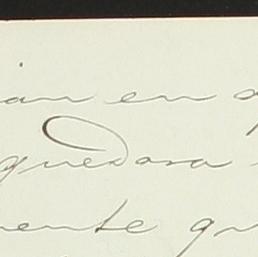 ian en
quedara
mente qu